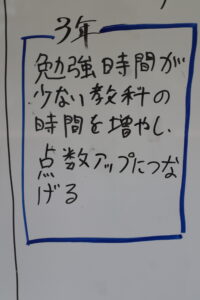 3年
勉強時間が
少ない教科の
時間を増やし、
点数アップにつな
げる